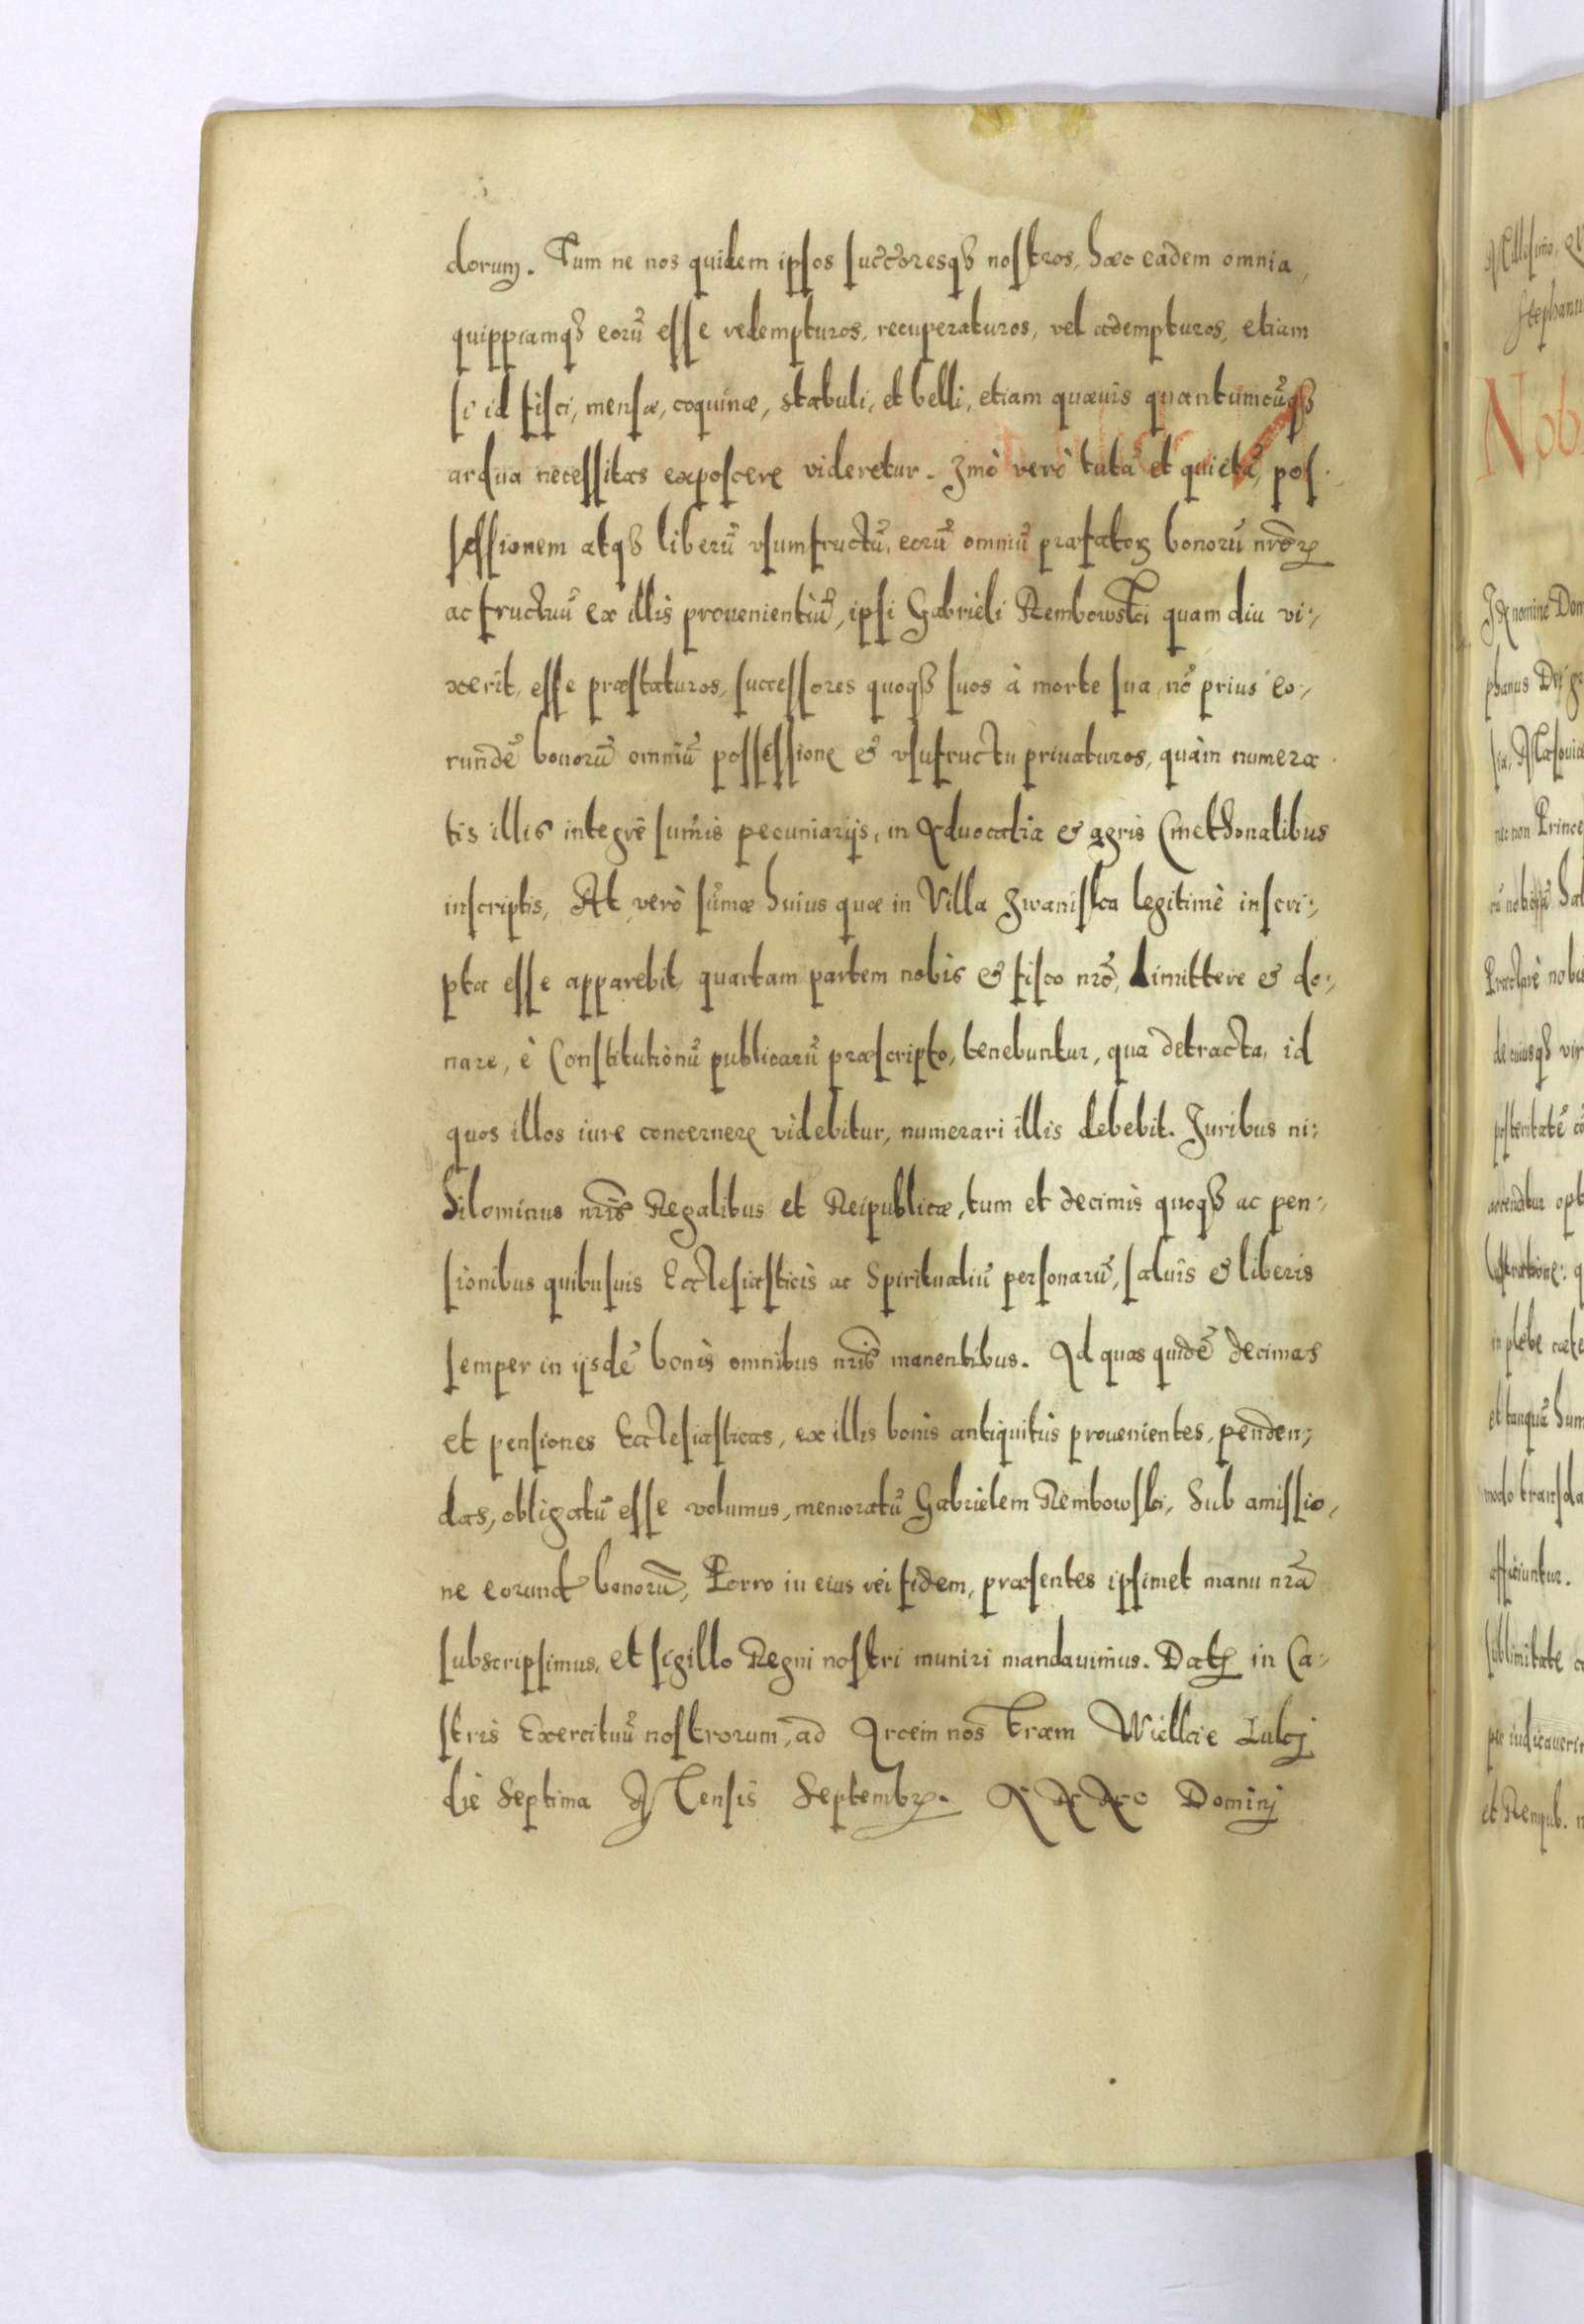 dorum. Tum ne nos quidem ipsos succōresq3 nostros, hæc eadem omnia,
quippiamq3 eorū esse redempturos, recuperaturos, vel adempturos, etiam
si id fisci, mensæ, coquinæ, stabuli, et belli, etiam quævis quantumcūq3
ardua necessitas exposcere videretur. Imò verò tutā et quietā, pos-
sessionem atq3 liberū vsumfructū, eorū omniū præfatoꝝ bonorū nr̄oꝝ
ac fructuū ex illis prouenientiū, ipsi Gabrieli Rembowski quam diu vi:,
xerit, esse præstaturos, successores quoq3 suos à morte sua, nō prius eo:,
rundē bonorū omniū possessione & vsufructu priuaturos, quàm numera
tis illis integrè sum̄is pecuniarijs, in Aduocatia & agris Cmethonalibus
inscriptis, At verò sūmæ huius quæ in Villa Iwaniska legitimè inscri:,
pta esse apparebit, quartam partem nobis & fisco nr̄o, dimittere & do:,
nare, è Constitutionū publicarū præscripto, tenebuntur, qua detracta, id
quos illos iure concernere videbitur, numerari illis debebit. Iuribus ni:
hilominus nr̄is Regalibus et Reipublicæ, tum et decimis quoq3 ac pen:,
sionibus quibusuis Ecclesiasticis ac Spiritualiū personarū, saluis & liberis
semper in ijsdē bonis omnibus nr̄is manentibus. Ad quas quidē decimas
et pensiones Ecclesiasticas, ex illis bonis antiquitùs prouenientes, penden:,
das, obligatū esse volumus, memoratū Gabrielem Rembowski, Sub amissio,
ne eorund bonorū, Porro in eius rei fidem, præsentes ipsimet manu nr̄a
subscripsimus, et sigillo Regni nostri muniri mandauimus. Datꝫ in Ca:,
stris Exercituū nostrorum, ad Arcem nostram Wielkie Lukj
die Septima Mensis Septembꝝ. Anno Dominj
Nob